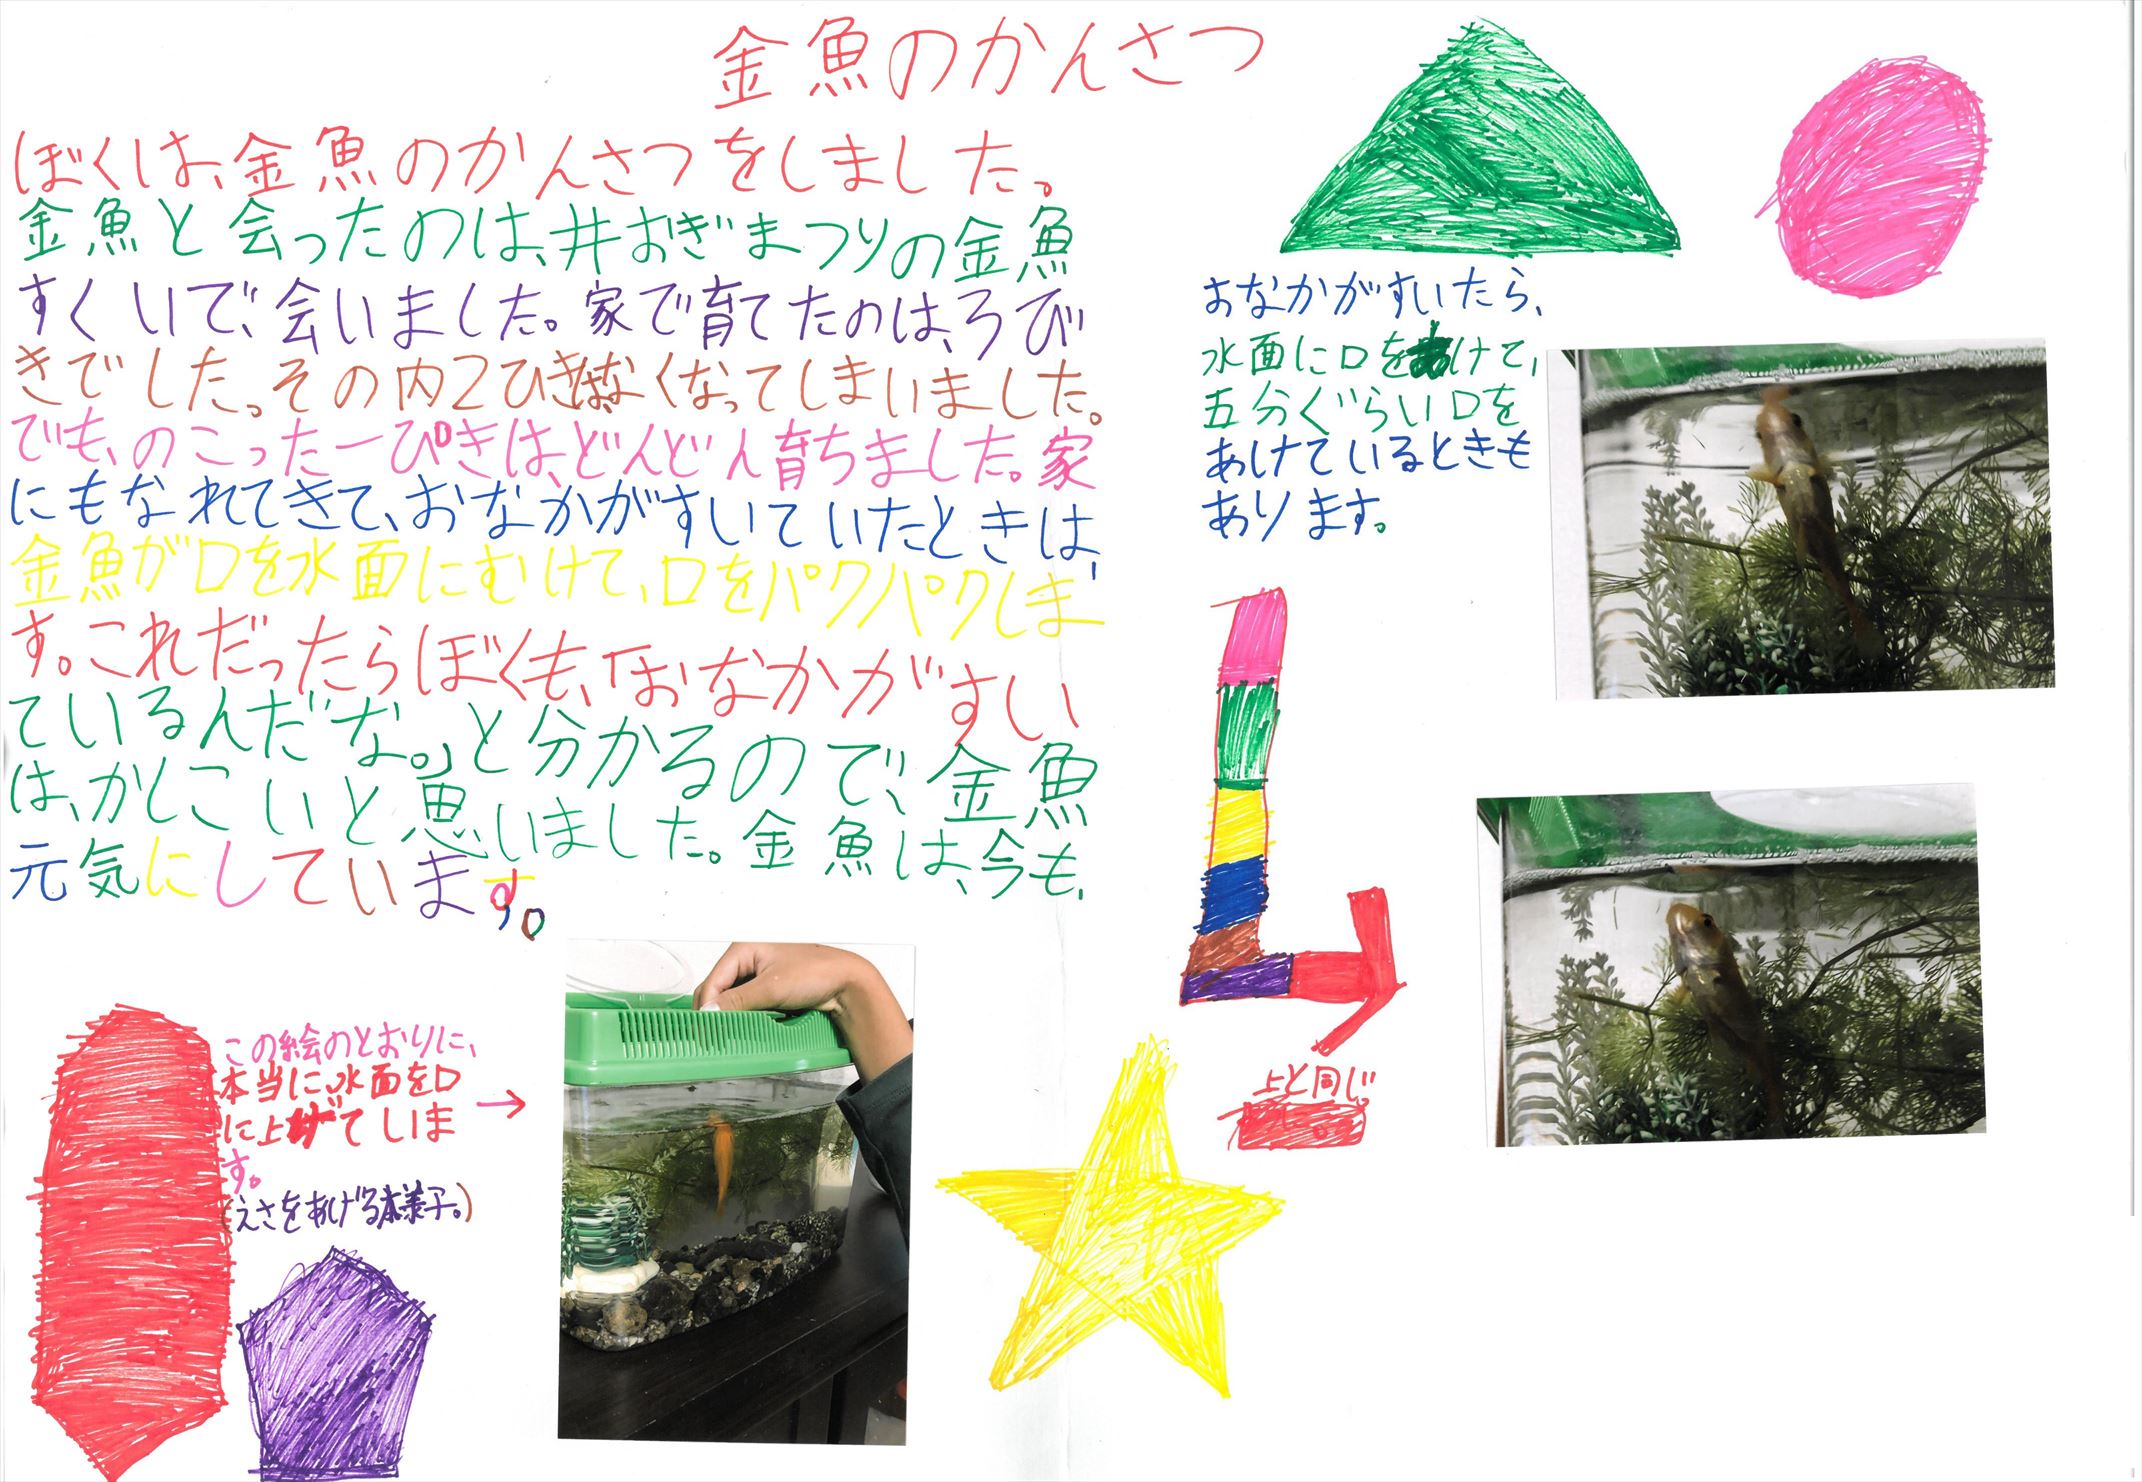 金魚のかんさつ
ぼくは、金魚のかんさつをしました。
金魚と会ったのは、井おぎまつりの金魚
すくいで、会いました。家で育てたのは、3び
きでした。その内2ひきは、なくなってしまいました。
でも、のこった一ぴきは、どんどん育ちました。家
にもなれてきて、おなかがすいていたときは、
金魚が口を水面にむけて、口をパクパクしま
す。これだったらぼくも、「おなかがすい
ているんだな。」と分かるので、金魚
は、かしこいと思いました。金魚は、今も、
元気にしています。
おなかがすいたら、
水面に口をあけて、
五分ぐらい口を
あけているときも
あります。
上と同じ。
この絵のとおりに、
本当に、水面を口
に上げています。
(えさをあげる様子。)